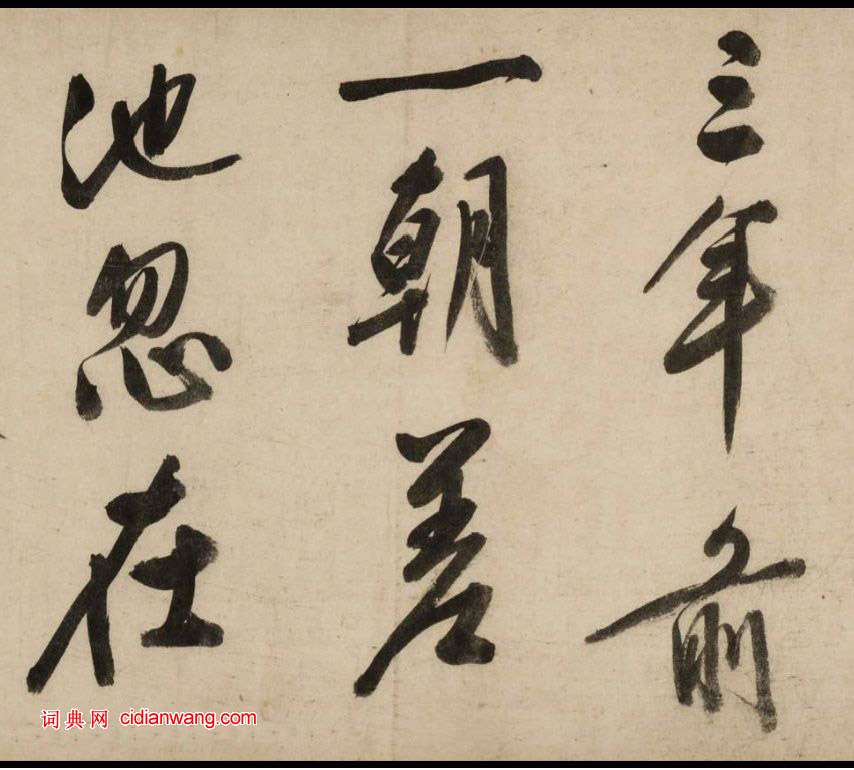 三年前
一朝差
池忽在
词典网 cidianwang.com